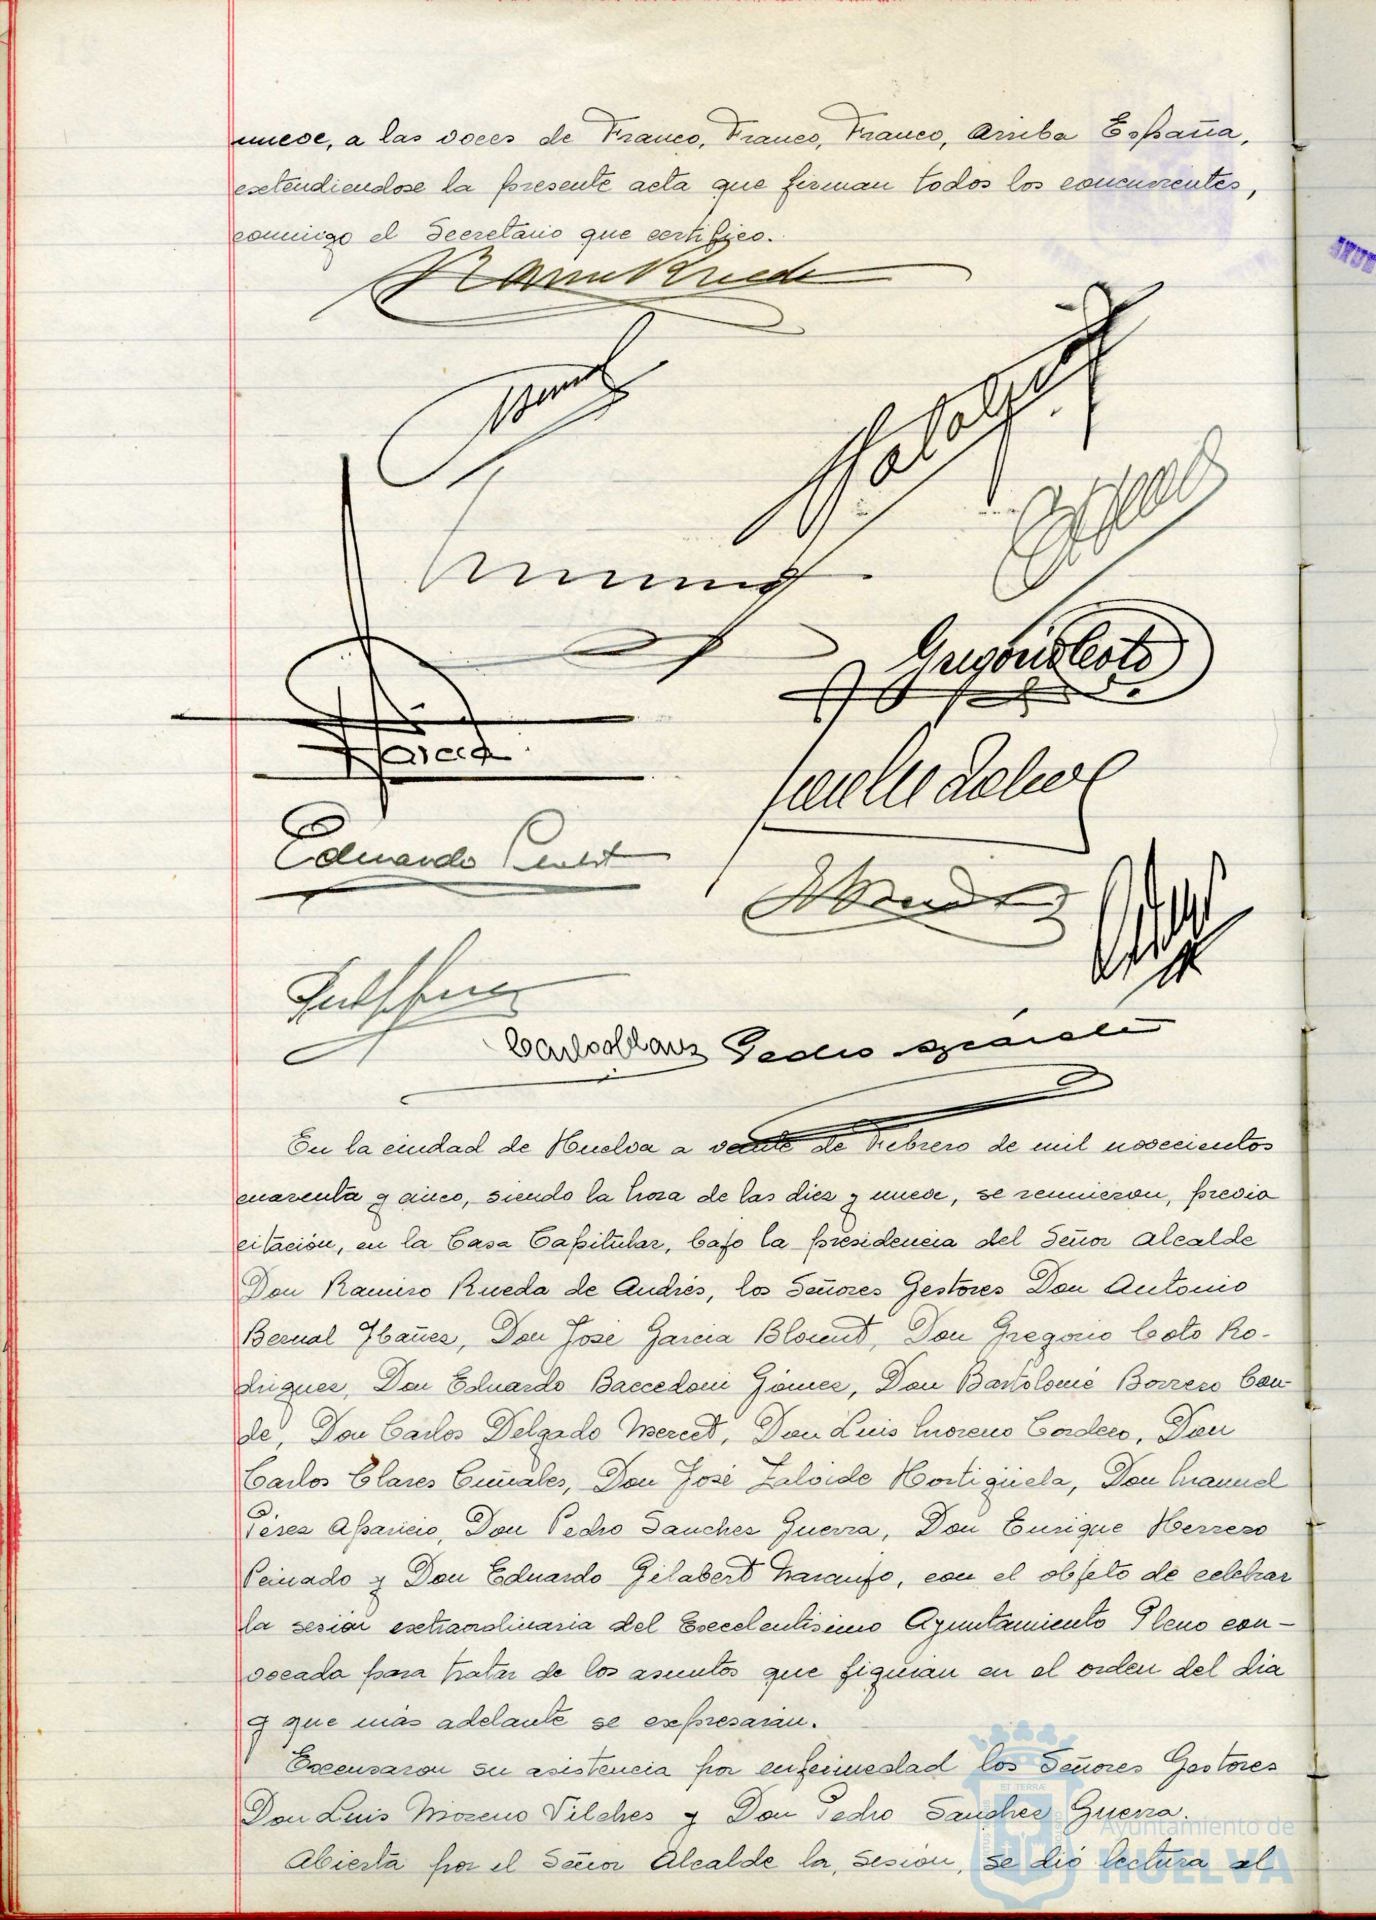 nueve, a las voces de Franco, Franco, Franco, Arriba España,
extendiendose la presente acta que firman todos los concurrentes,
conmigo el Secretario que certifico.
Ramiro Rueda
Gregorio Coto
García
Eduardo
Carlos Clares Pedro
En la ciudad de Huelva a veinte de Febrero de mil novecientos
cuarenta y cinco, siendo la hora de las diez y nueve, se reunieron, previa
citación, en la Casa Capitular, bajo la presidencia del Señor Alcalde
Don Ramiro Rueda de Andrés, los Señores Gestores Don Antonio
Bernal Ybañez, Don José García Blount, Don Gregorio Coto Ro-
driguez, Don Eduardo Baccedoni Gómez, Don Bartolomé Borrero Con-
de, Don Carlos Delgado Mercet, Don Luis Moreno Cordero, Don
Carlos Clares Cuñales, Don José Zalvide Hortigüela, Don Manuel
Pérez Aparicio, Don Pedro Sanchez Guerra, Don Enrique Herrero
Peinado y Don Eduardo Gilabert Naranjo, con el objeto de celebrar
la sesión extraordinaria del Excelentisimo Ayuntamiento Pleno con-
vocada para tratar de los asuntos que figuran en el orden del dia
y que más adelante se expresarán.
Excusaron su asistencia por enfermedad los Señores Gestores
Don Luis Moreno Vilches y Don Pedro Sanchez Guerra.
Abierta por el Señor Alcalde la sesión, se dió lectura al
Ayuntamiento de
HUELVA